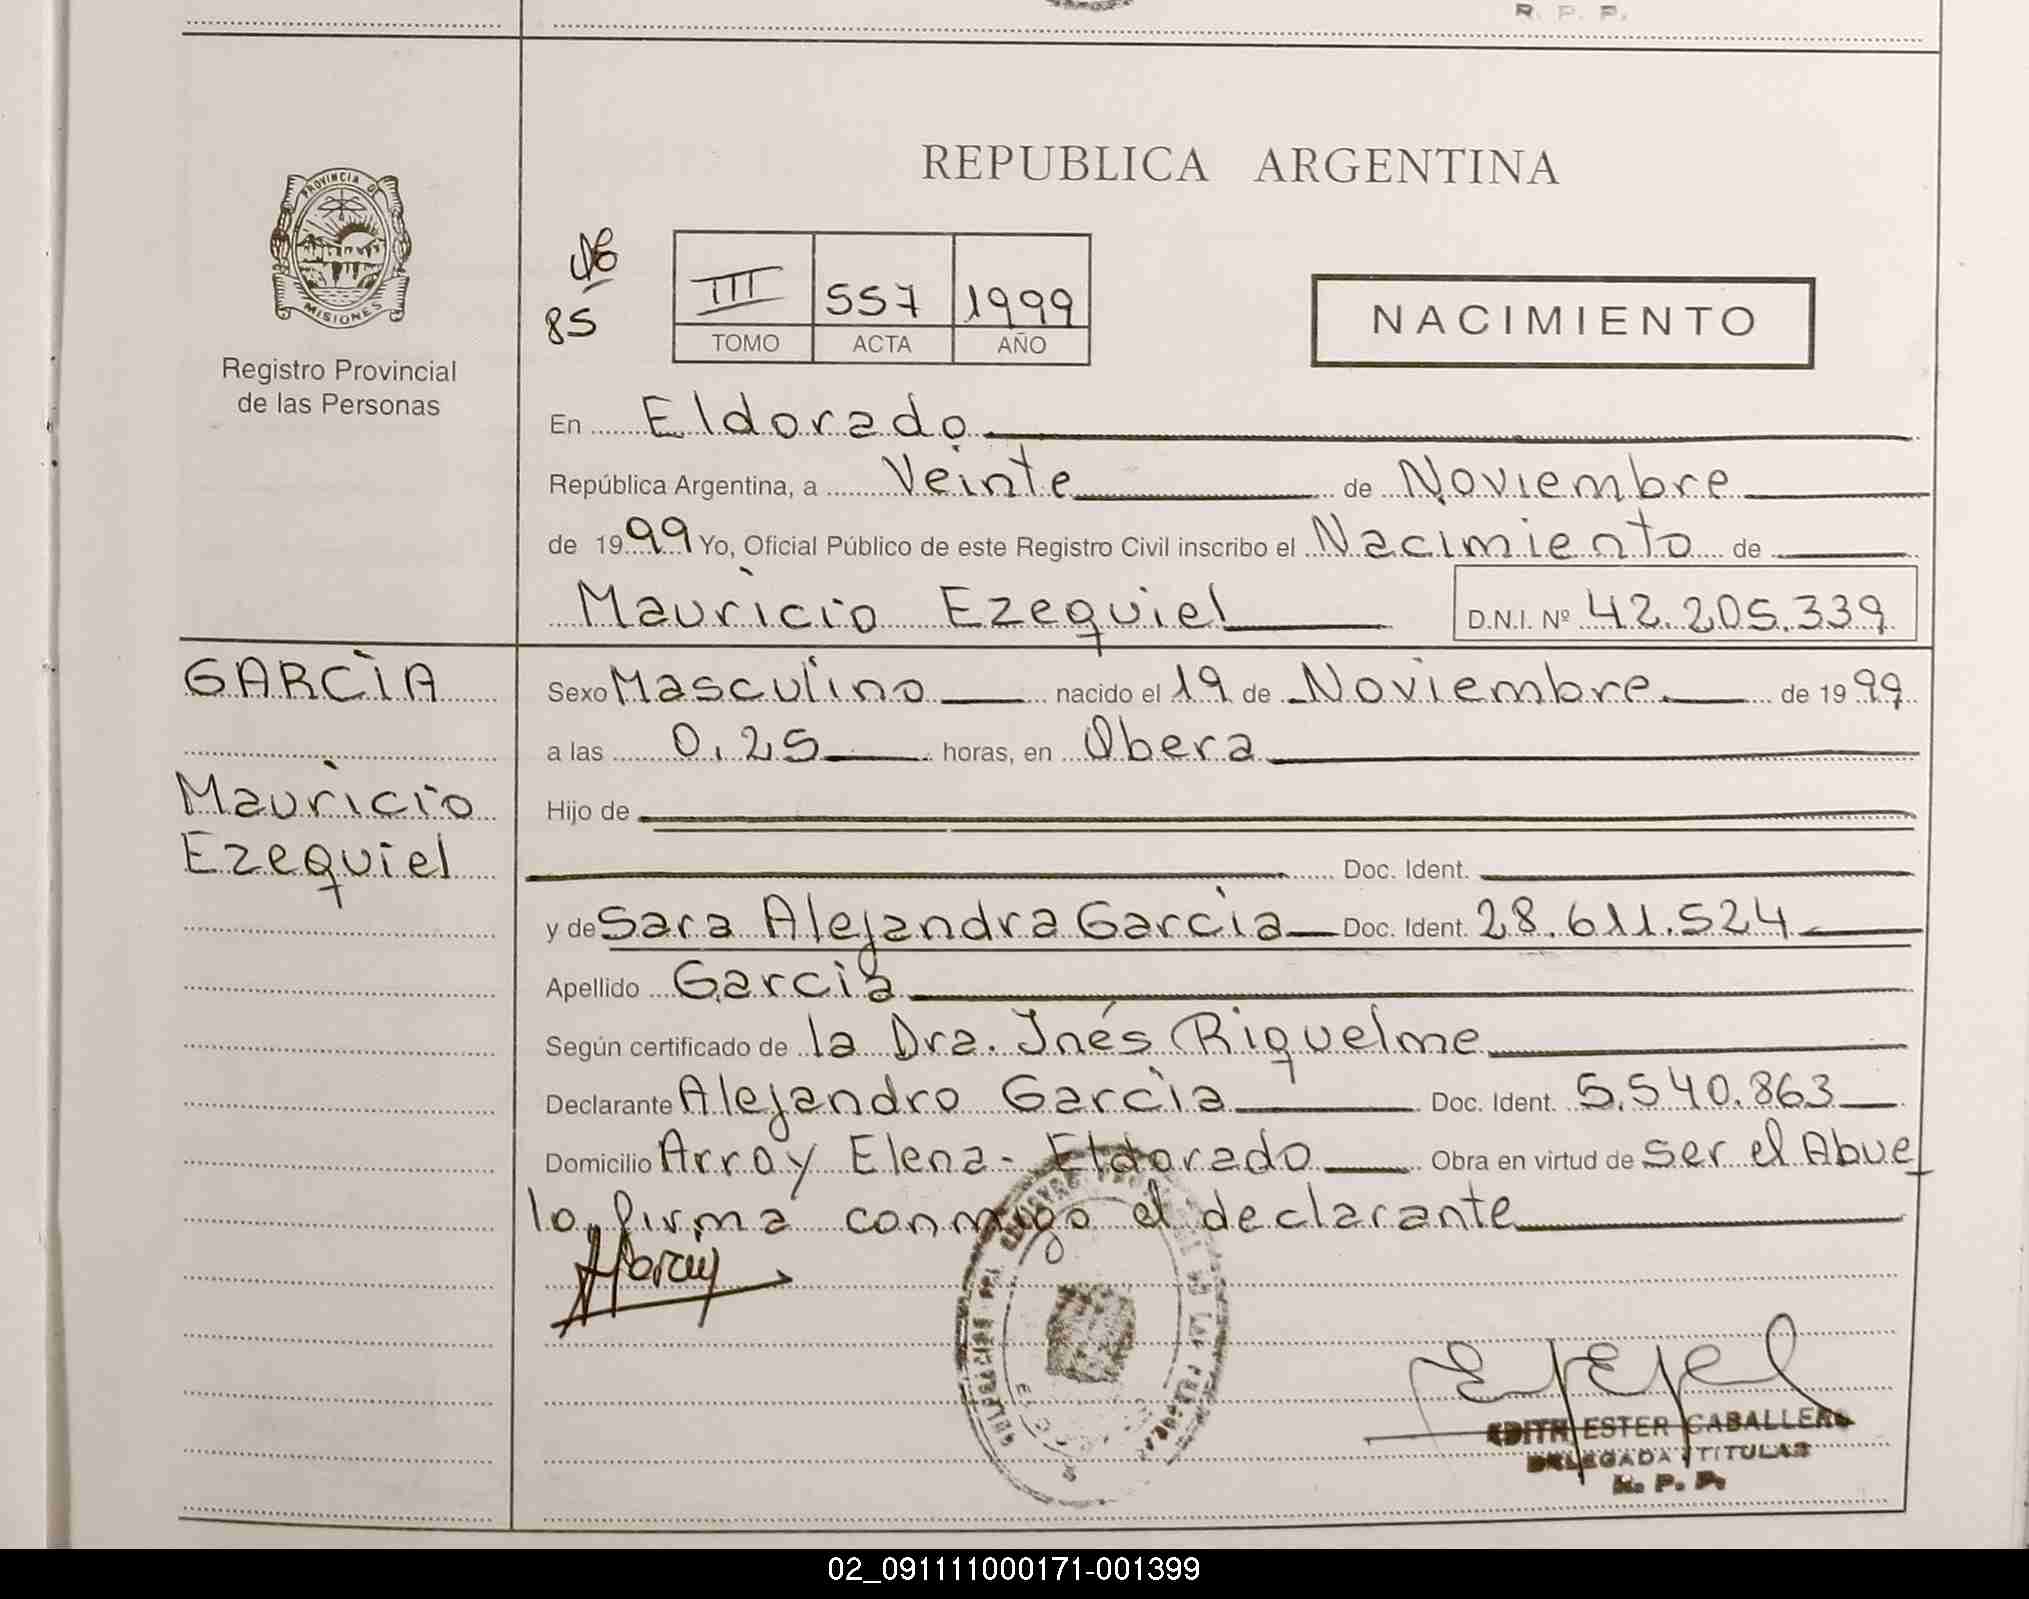 R. P. P.
REPUBLICA ARGENTINA
PROVINCIA DE
MISIONES
Registro Provincial
de las Personas
85
III 557 1999
TOMO ACTA AÑO
NACIMIENTO
En Eldorado
República Argentina, a Veinte de Noviembre
de 1999 Yo, Oficial Público de este Registro Civil inscribo el Nacimiento de
Mauricio Ezequiel D.N.I. Nº 42.205.339
GARCÌA
Mauricio
Ezequiel
Sexo Masculino nacido el 19 de Noviembre de 1999
a las 0.25 horas, en Obera
Hijo de
Doc. Ident.
y de Sara Alejandra Garcìa Doc. Ident. 28.611.524
Apellido Garcìa
Según certificado de la Dra. Inés Riquelme
Declarante Alejandro Garcìa Doc. Ident. 5.540.863
Domicilio Arroy Elena - Eldorado Obra en virtud de ser el Abue
lo, firma conmigo el declarante
EDITH ESTER CABALLERO
DELEGADA TITULAR
R. P. P.
02_091111000171-001399